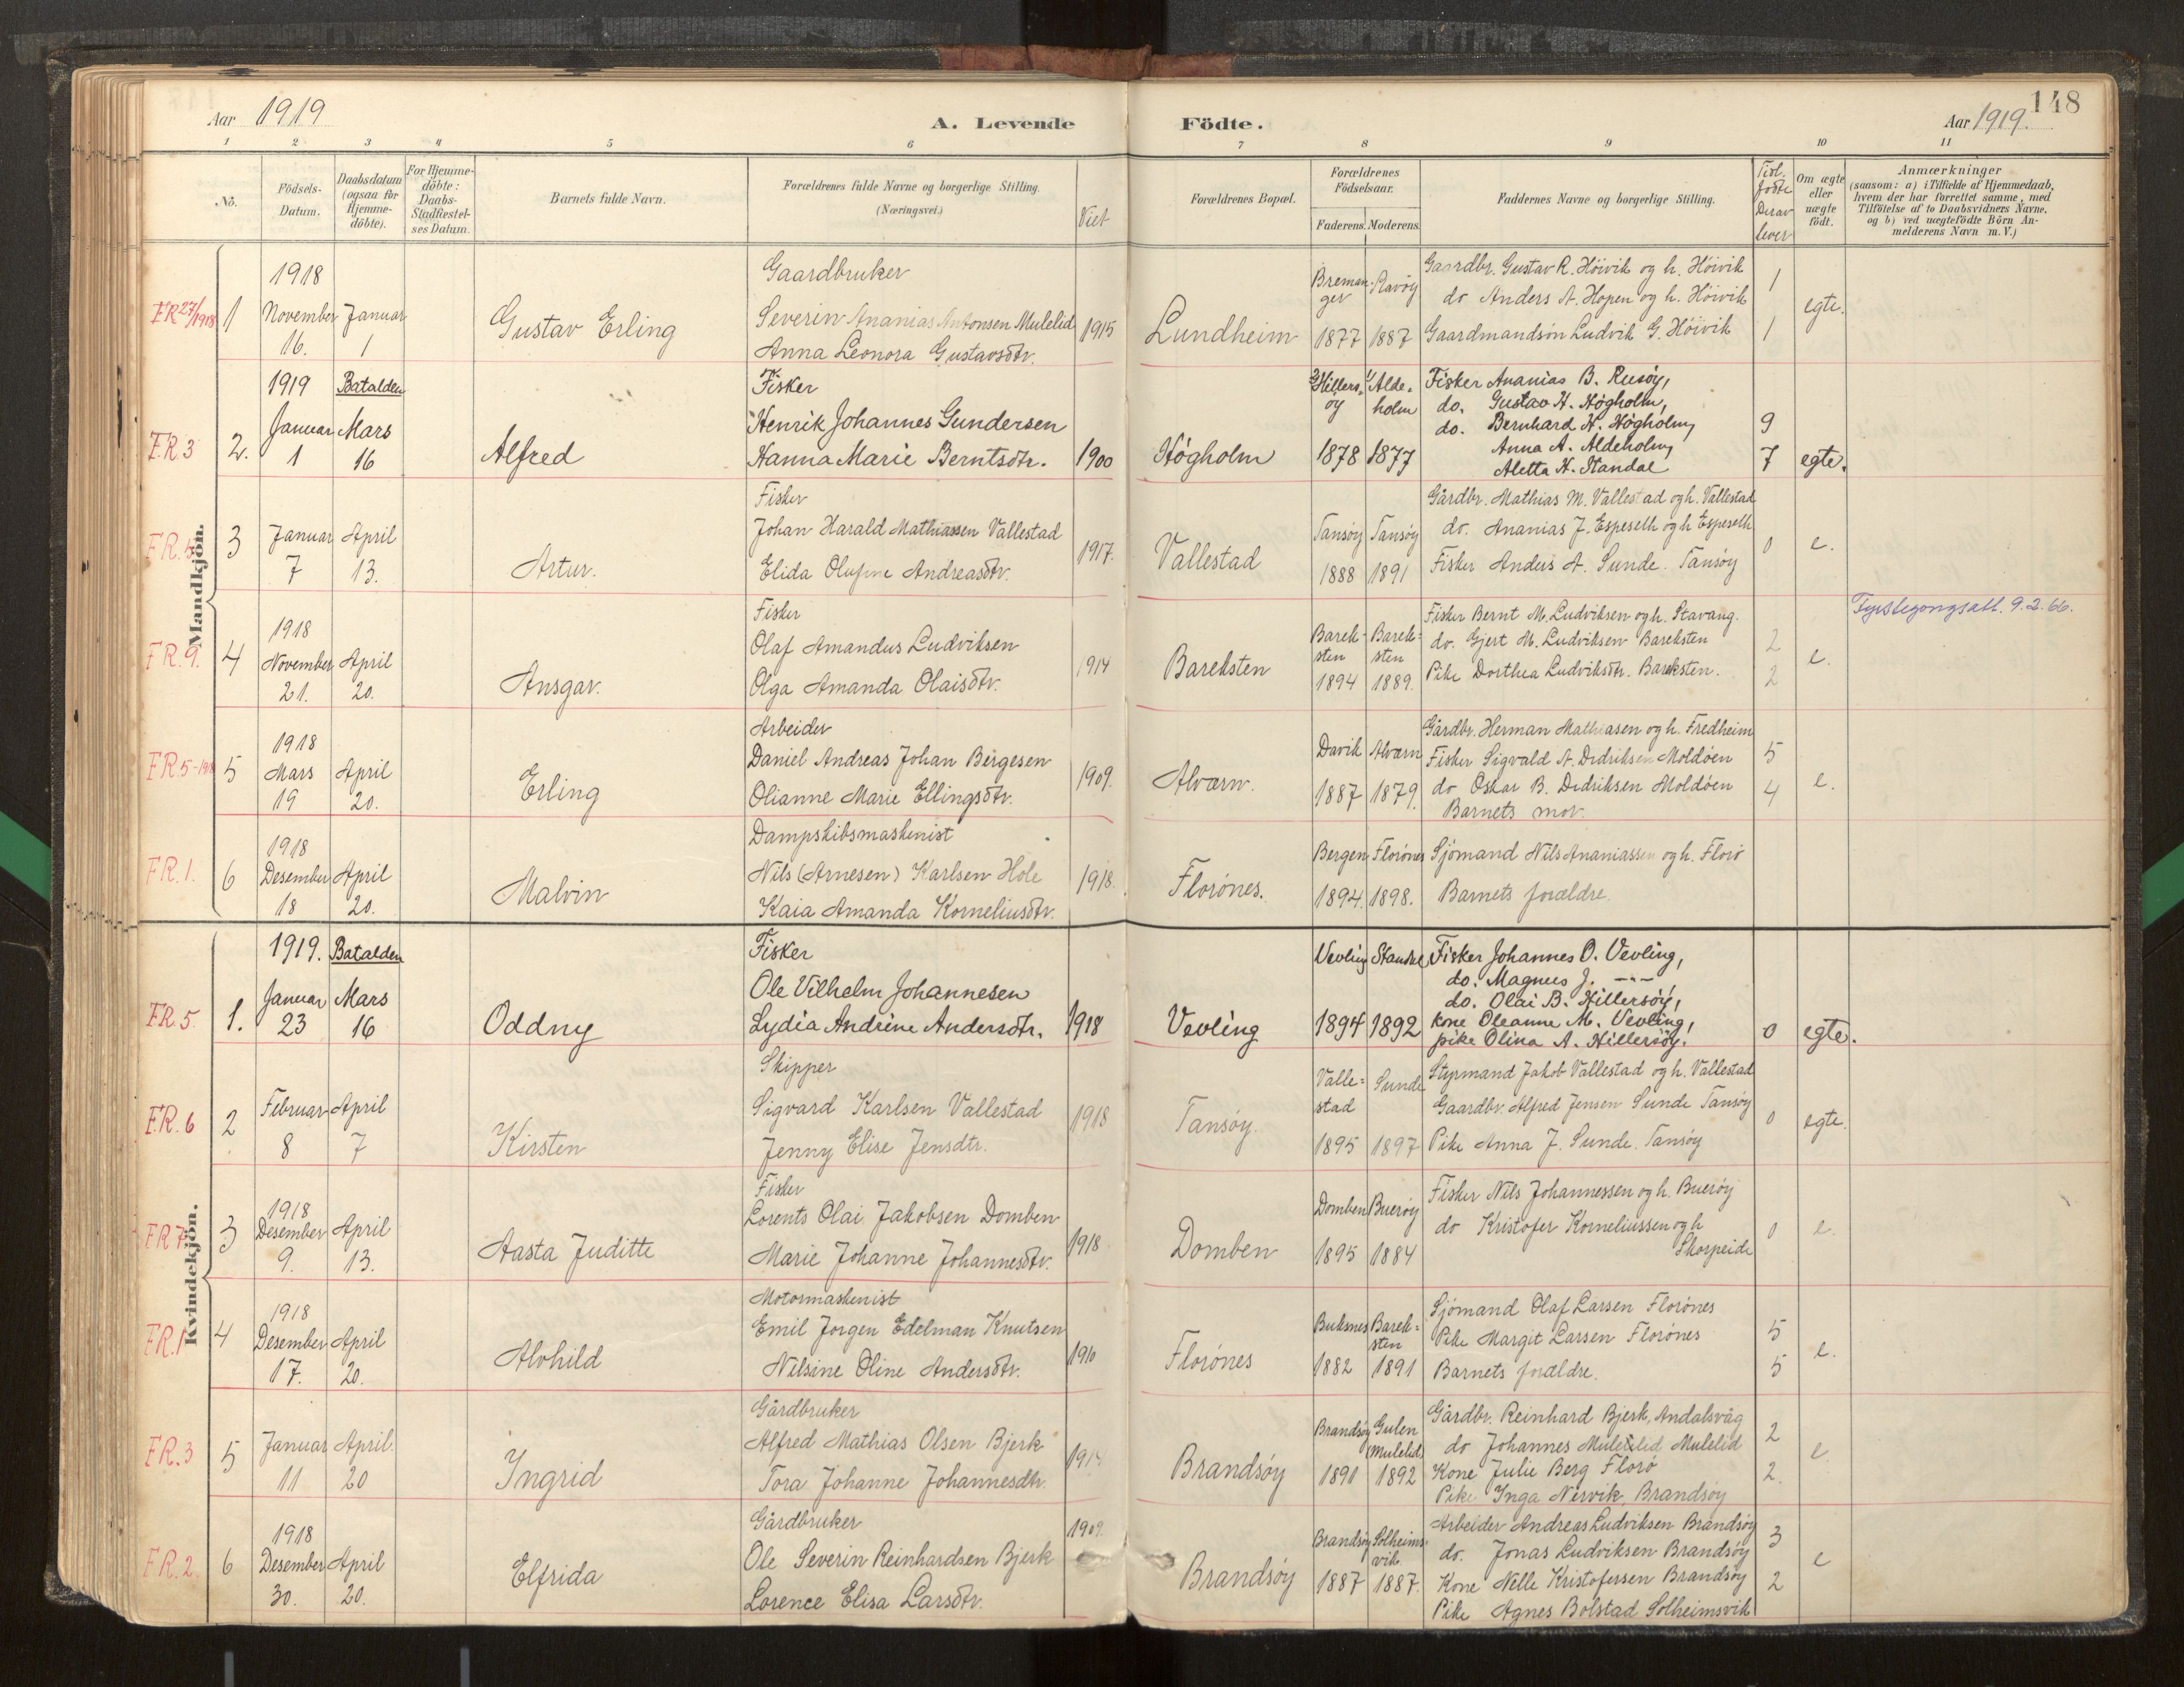 148
Aar 1919
A. Levende Födte.
Aar 1919.
1 2 3 4 5 6 7 8 9 10 11
No.
Födsels-
Datum.
Daabsdatum
(ogsaa for
Hjemme-
döbte).
For Hjemme-
döbte:
Daabs-
Stadfæstel-
ses Datum.
Barnets fulde Navn.
Forældrenes fulde Navne og borgerlige Stilling.
(Næringsvei.)
Viet
Forældrenes Bopæl.
Forældrenes
Födselsaar.
Faderens. Moderens.
Faddernes Navne og borgerlige Stilling.
Tidl.
fødte
Derav
lever
Om ægte
eller
uægte
födt.
Anmærkninger
(saasom: a) i Tilfælde af Hjemmedaab,
hvem der har forrettet samme, med
Tilföielse af to Daabsvidners Navne,
og b) ved uægtefödte Börn An-
melderens Navn m. V.)
Mandkjön.
FR 27/1918
1
1918
November
16.
Januar
1
Gustav Erling
Gaardbruker
Severin Ananias Antonsen Mulelid
Anna Leonora Gustavsdtr.
1915
Lundheim
Breman-
ger
1877
Ravöy
1887
Gaardbr. Gustav R. Höivik og h. Höivik
do Anders A. Hopen og h. Höivik
Gaardmandsön Ludvik G. Höivik
1
1
egte.
FR. 3
2.
1919
Januar
1
Batalden
Mars
16
Alfred
Fisker
Henrik Johannes Gundersen
Hanna Marie Berntsdtr.
1900
Högholm
Hillers-
öy
1878
Alde-
holm
1877
Fisker Ananias B. Rusöy,
do. Gustav H. Högholm,
do. Bernhard H. Högholm,
Anna A. Aldeholm,
Aletta H. Standal
9
7
egte.
FR. 4
3
Januar
7
April
13.
Artur.
Fisker
Johan Harald Mathiassen Vallestad
Elida Olufine Andreasdtr.
1917.
Vallestad
Tansöy
1888
Tansöy
1891
Gårdbr. Mathias M. Vallestad og h. Vallestad
do. Ananias J. Espeseth og h Espeseth
Fisker Anders A. Sunde. Tansöy
0
e.
FR. 9.
4
1918
November
21.
April
20.
Ansgar.
Fisker
Olaf Amandus Ludviksen
Olga Amanda Olaisdtr.
1914
Bareksten
Barek-
sten
1894
Barek-
sten
1889.
Fisker Bernt M. Ludviksen og h. Stavang.
do. Gjert M. Ludviksen Bareksten
Pike Dorthea Ludviksdtr. Bareksten.
2
2
e.
9.2.66.
FR 5-1918
5
1918
Mars
19
April
20.
Erling
Arbeider
Daniel Andreas Johan Börgesen
Olianne Marie Ellingsdtr.
1909.
Alværn.
Davik
1887
Alværn
1879.
Gårdbr. Herman Mathiasen og h. Fredheim
Fisker Sigvald A. Didriksen Moldöen
do Oskar B. Didriksen Moldöen
Barnets mor.
5
4
e.
FR. 1.
6
1918
Desember
18
April
20.
Malvin
Dampskibsmaskenist
Nils (Arnesen) Karlsen Hole
Kaia Amanda Korneliusdtr.
1918.
Florönes.
Bergen
1894.
Florönes
1898.
Sjömand Nils Ananiassen og h. Florö
Barnets forældre.
Kvindekjön.
FR. 5
1.
1919.
Januar
23
Batalden
Mars
16
Oddny
Fisker
Ole Vilhelm Johannesen
Lydia Andrine Andersdtr.
1918
Vevling
Vevling
1894
Standal
1892
Fisker Johannes O. Vevling,
do. Magnus J. -"-
do. Olai B. Hillersöy,
kone Oleanne M. Vevling,
pike Olina A. Hillersöy.
0
egte.
FR. 6
2
Februar
8
April
7
Kirsten
Skipper
Sigvard Karlsen Vallestad
Jenny Elise Jensdtr.
1918
Tansöy.
Valle-
stad
1895
Sunde
1897
Styrmand Jakob Vallestad og h. Vallestad
Gaardbr. Alfred Jensen Sunde Tansöy
Pike Anna J. Sunde. Tansöy
0
egte.
FR 7
3
1918
Desember
9.
April
13.
Aasta Juditte
Fisker
Lorents Olai Jakobsen Domben
Marie Johanne Johannesdtr.
1918
Domben
Domben
1895
Bueröy
1884
Fisker Nils Johannessen og h. Bueröy
do Kristofer Korneliussen og h
Skorpeide
0
e.
FR. 1
4
1918
Desember
17.
April
20.
Alvhild
Motormaskenist
Emil Jorgen Edelman Knutsen
Nilsine Oline Andersdtr.
1910
Florönes
Buksnes
1882
Barek-
sten
1891
Sjömand Olaf Larsen Florönes
Pike Margit Larsen Florönes
Barnets forældre.
5
5
e.
FR. 3
5
Januar
11
April.
20
Ingrid
Gårdbruker
Alfred Mathias Olsen Bjerk
Tora Johanne Johannesdtr.
Brandsöy
Brandsöy
1891
Gulen
(Mulelid)
1892
Gårdbr. Reinhard Bjerk, Andalsvåg
do Johannes Mulelid Mulelid
Kone Julie Berg Florö
Pike Inga Nervik, Brandsöy
2
2.
e
FR. 2
6
1918
Desember
30.
April
20.
Elfrida
Gårdbruker
Ole Severin Reinhardsen Bjerk
Lorence Elisa Larsdtr.
1909.
Brandsöy
Brandsöy
1887
Solheims-
vik
1887.
Arbeider Andreas Ludviksen Brandsöy
do. Jonas Ludviksen Brandsöy
Kone Nelle Kristofersen Brandsöy
Pike Agnes Bolstad Solheimsvik
3
2
e